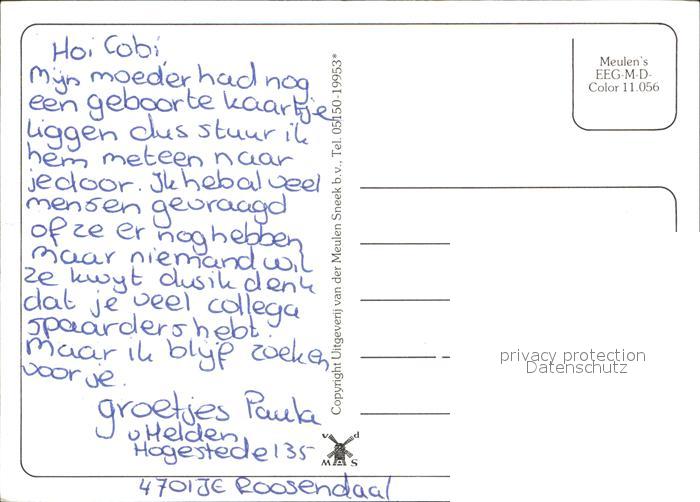 Hoi Cobi,
Mijn moeder had nog
een geboorte kaartje
liggen dus stuur ik
hem meteen naar
je door. Ik heb al veel
mensen gevraagd
of ze er nog hebben
maar niemand wil
ze kwyt dus ik denk
dat je veel collega
spaarders hebt.
Maar ik blijf zoeken
voor je.
groetjes Paula
v Helden
Hogestede 135
4701JE Roosendaal
Copyright Uitgeverij van der Meulen Sneek b.v., Tel. 05150-19953*
v d
M A S
Meulen's
EEG-M-D-
Color 11.056
privacy protection
Datenschutz